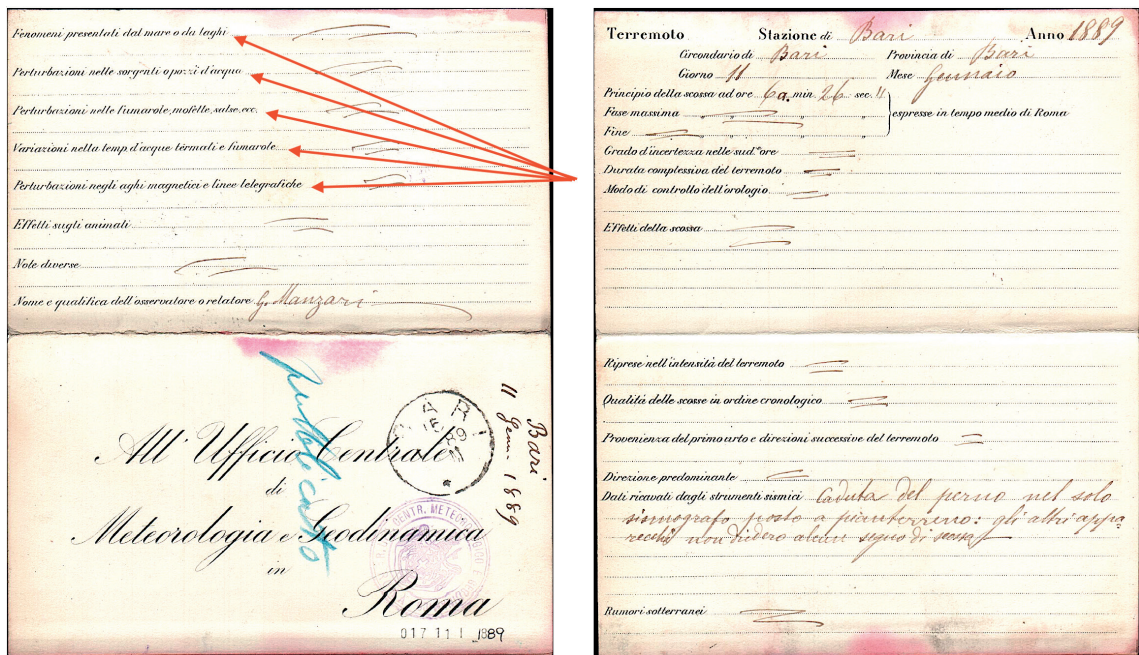 Fenomeni presentati dal mare o da laghi
Perturbazioni nelle sorgenti o pozzi d'acqua
Perturbazioni nelle fumarole, mofette, salse, ecc.
Variazioni nella temp. d'acque termali e fumarole
Perturbazioni negli aghi magnetici e linee telegrafiche
Effetti sugli animali
Note diverse
Nome e qualifica dell'osservatore o relatore G. Manzari
pubblicato
BARI
89
Bari
11 Genn. 1889
All' Ufficio Centrale
di
Meteorologia e Geodinamica
in
Roma
017 11 1 1889
Terremoto Stazione di Bari Anno 1889
Circondario di Bari Provincia di Bari
Giorno 11 Mese Gennaio
Principio della scossa ad ore 6a. min. 26 sec. "
Fase massima " " " espresse in tempo medio di Roma
Fine " " "
Grado d'incertezza nelle sud.e ore
Durata complessiva del terremoto
Modo di controllo dell'orologio
Effetti della scossa
Riprese nell'intensità del terremoto
Qualità delle scosse in ordine cronologico
Provenienza del primo urto e direzioni successive del terremoto
Direzione predominante
Dati ricavati dagli strumenti sismici Caduta del perno nel solo
sismografo posto a pianterreno: gli altri appa-
recchi non diedero alcun segno di scossa
Rumori sotterranei